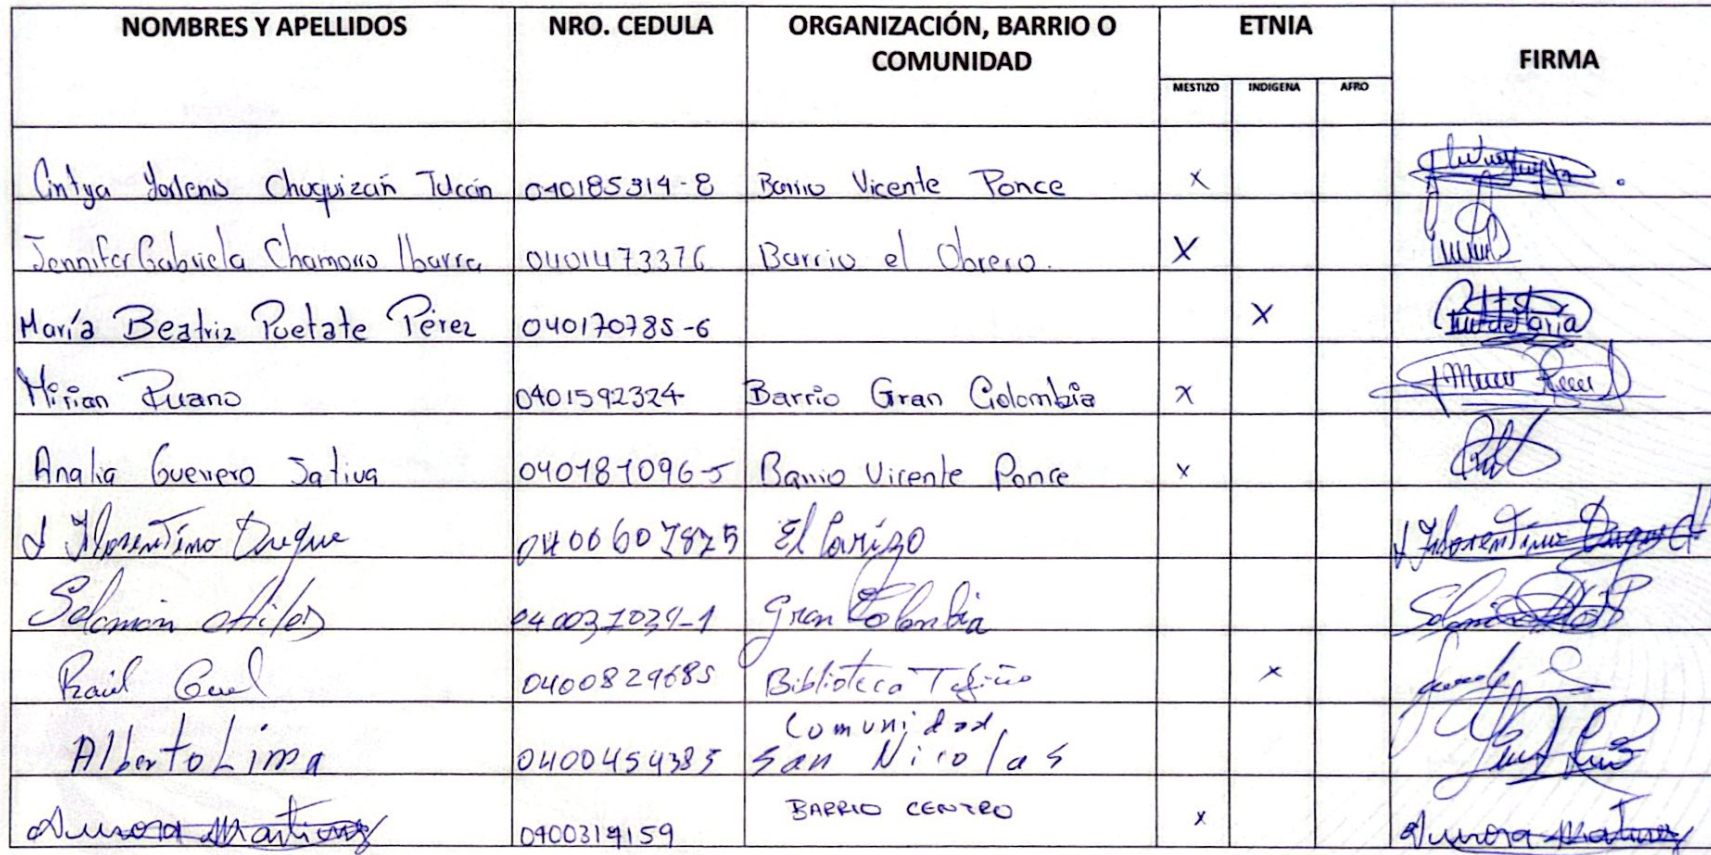 NOMBRES Y APELLIDOS NRO. CEDULA ORGANIZACIÓN, BARRIO O COMUNIDAD ETNIA FIRMA
MESTIZO INDIGENA AFRO
Cintya Chuquizán Tulcán 040185314-8 Barrio Vicente Ponce X
Jennifer Gabriela Chamorro Ibarra 0401473376 Barrio el Obrero. X
María Beatriz Puetate Pérez 040170785-6 X
Mirian Ruano 0401592324 Barrio Gran Colombia X
Analia Guerrero Jativa 040181096-5 Barrio Vicente Ponce X
Florentino Duque 0400607875 El Florentino Duque
Salomón 040037039-1 Gran Colombia
Raúl 0400829685 Biblioteca Tufiño X
Alberto Lima 0400454385 Comunidad San Nicolas
Aurora Martinez 0400319159 BARRIO CENTRO X Aurora Martinez